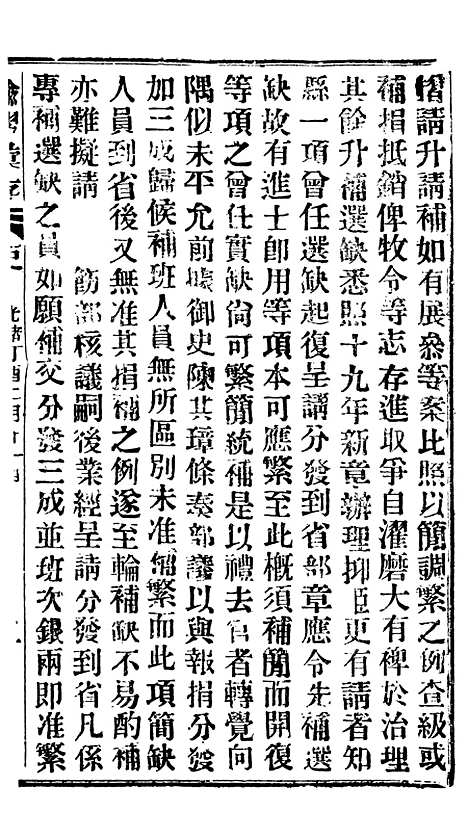 摺請升請補如有展叅等案比照以簡調繁之例查級或
補捐抵銷俾牧令等志存進取爭自濯磨大有裨於治理
其餘升補選缺悉照十九年新章辦理抑臣更有請者知
縣一項曾任選缺起復呈請分發到省部章應令先補選
缺故有進士卽用等項本可應繁至此槪須補簡而開復
等項之曾任實缺尙可繁簡統補是以禮去官者轉覺向
隅似未平允前據御史陳其璋條奏部議以與報捐分發
加三成歸候補班人員無所區別未准補繁而此項簡缺
人員到省後又無准其捐補之例遂至輪補缺不易酌補
亦難擬請　飭部核議嗣後業經呈請分發到省凡係
專補選缺之員如願補交分發三成並班次銀兩即准繁